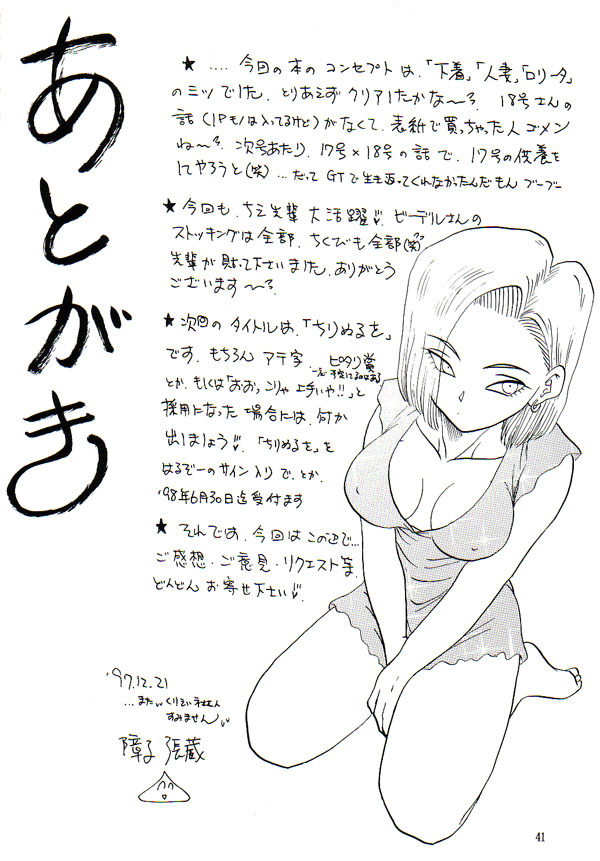 あとがき
★ .... 今回の本のコンセプトは、「下着」「人妻」「ロリータ」
のミツでした。とりあえずクリアしたかな〜?. 18号さんの
話(1Pモノは入ってるけど)がなくて、表紙で買っちゃった人ゴメン
ね〜?. 次号あたり、17号×18号の話で、17号の供養を
してやろうと(笑)...だってGTで生き返ってくれなかったんだもんブーブー
★今回も、ちえ先輩大活躍、ビーデルさんの
ストッキングは全部、ちくびも全部(笑)
先輩が貼って下さいました、ありがとう
ございます〜?.
★次回のタイトルは、「ちりぬるを」
です、もちろんアテ字、ピタリ賞
とか、もしくは「おおっこりゃ上手いや!!」と
採用になった場合には、何か
出しましょう、「ちりぬるを」を
はるぞーのサイン入りで、とか、
'98年6月30日迄受付ます
★それでは、今回はこの辺で...
ご感想・ご意見・リクエスト等、
どんどんお寄せ下さい
'97.12.21
...また
すみません
障子 張蔵
41